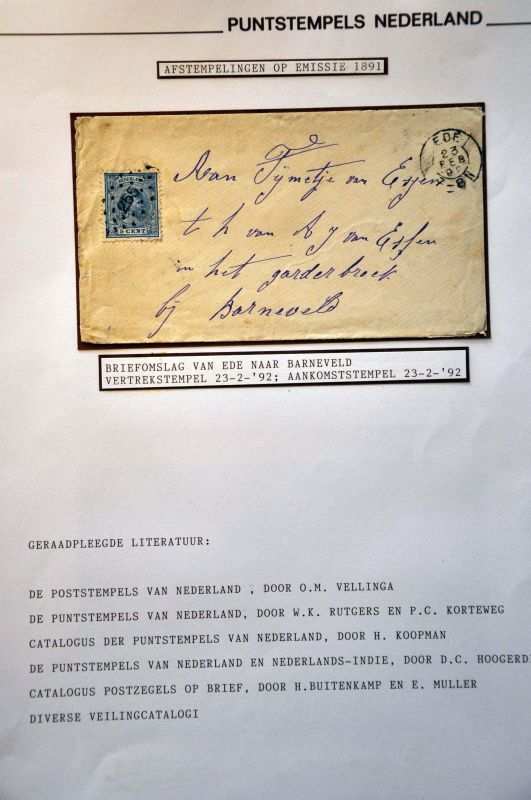 PUNTSTEMPELS NEDERLAND
AFSTEMPELINGEN OP EMISSIE 1891
EDE
23
FEB
5 CENT
Aan Tijmetje van Essen
t h van A J van Essen
in het garderbroek
bij Barneveld
BRIEFOMSLAG VAN EDE NAAR BARNEVELD
VERTREKSTEMPEL 23-2-'92; AANKOMSTSTEMPEL 23-2-'92
GERAADPLEEGDE LITERATUUR:
DE POSTSTEMPELS VAN NEDERLAND , DOOR O.M. VELLINGA
DE PUNTSTEMPELS VAN NEDERLAND, DOOR W.K. RUTGERS EN P.C. KORTEWEG
CATALOGUS DER PUNTSTEMPELS VAN NEDERLAND, DOOR H. KOOPMAN
DE PUNTSTEMPELS VAN NEDERLAND EN NEDERLANDS-INDIE, DOOR D.C. HOOGERD
CATALOGUS POSTZEGELS OP BRIEF, DOOR H.BUITENKAMP EN E. MULLER
DIVERSE VEILINGCATALOGI